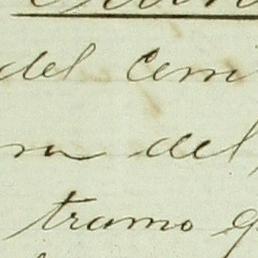 del Cem
ra del
tramo q